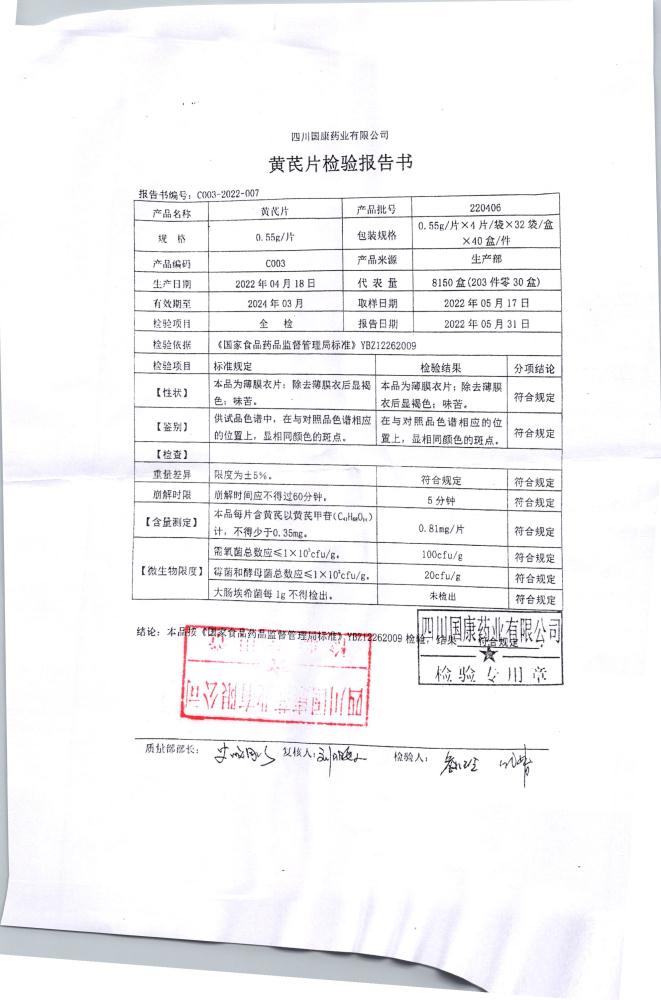 四川国康药业有限公司
黄芪片检验报告书
报告书编号：C003-2022-007
产品名称 黄芪片 产品批号 220406
规 格 0.55g/片 包装规格 0.55g/片×4片/袋×32袋/盒
×40盒/件
产品编码 C003 产品来源 生产部
生产日期 2022年04月18日 代 表 量 8150盒(203件零30盒)
有效期至 2024年03月 取样日期 2022年05月17日
检验项目 全 检 报告日期 2022年05月31日
检验依据 《国家食品药品监督管理局标准》YBZ12262009
检验项目 标准规定 检验结果 分项结论
【性状】 本品为薄膜衣片；除去薄膜衣后显褐 本品为薄膜衣片；除去薄膜 符合规定
色；味苦。 衣后显褐色；味苦。
【鉴别】 供试品色谱中，在与对照品色谱相应 在与对照品色谱相应的位 符合规定
的位置上，显相同颜色的斑点。 置上，显相同颜色的斑点。
【检查】
重量差异 限度为±5%。 符合规定 符合规定
崩解时限 崩解时间应不得过60分钟。 5分钟 符合规定
【含量测定】 本品每片含黄芪以黄芪甲苷(C₄₁H₆₈O₁₄) 0.81mg/片 符合规定
计，不得少于0.35mg。
【微生物限度】 需氧菌总数应≤1×10³cfu/g。 100cfu/g 符合规定
霉菌和酵母菌总数应≤1×10²cfu/g。 20cfu/g 符合规定
大肠埃希菌每1g不得检出。 未检出 符合规定
结论：本品按《国家食品药品监督管理局标准》YBZ12262009检验，结果 符合规定
四川国康药业有限公司
检验专用章
四川国康药业有限公司
质量部部长： 复核人： 检验人：